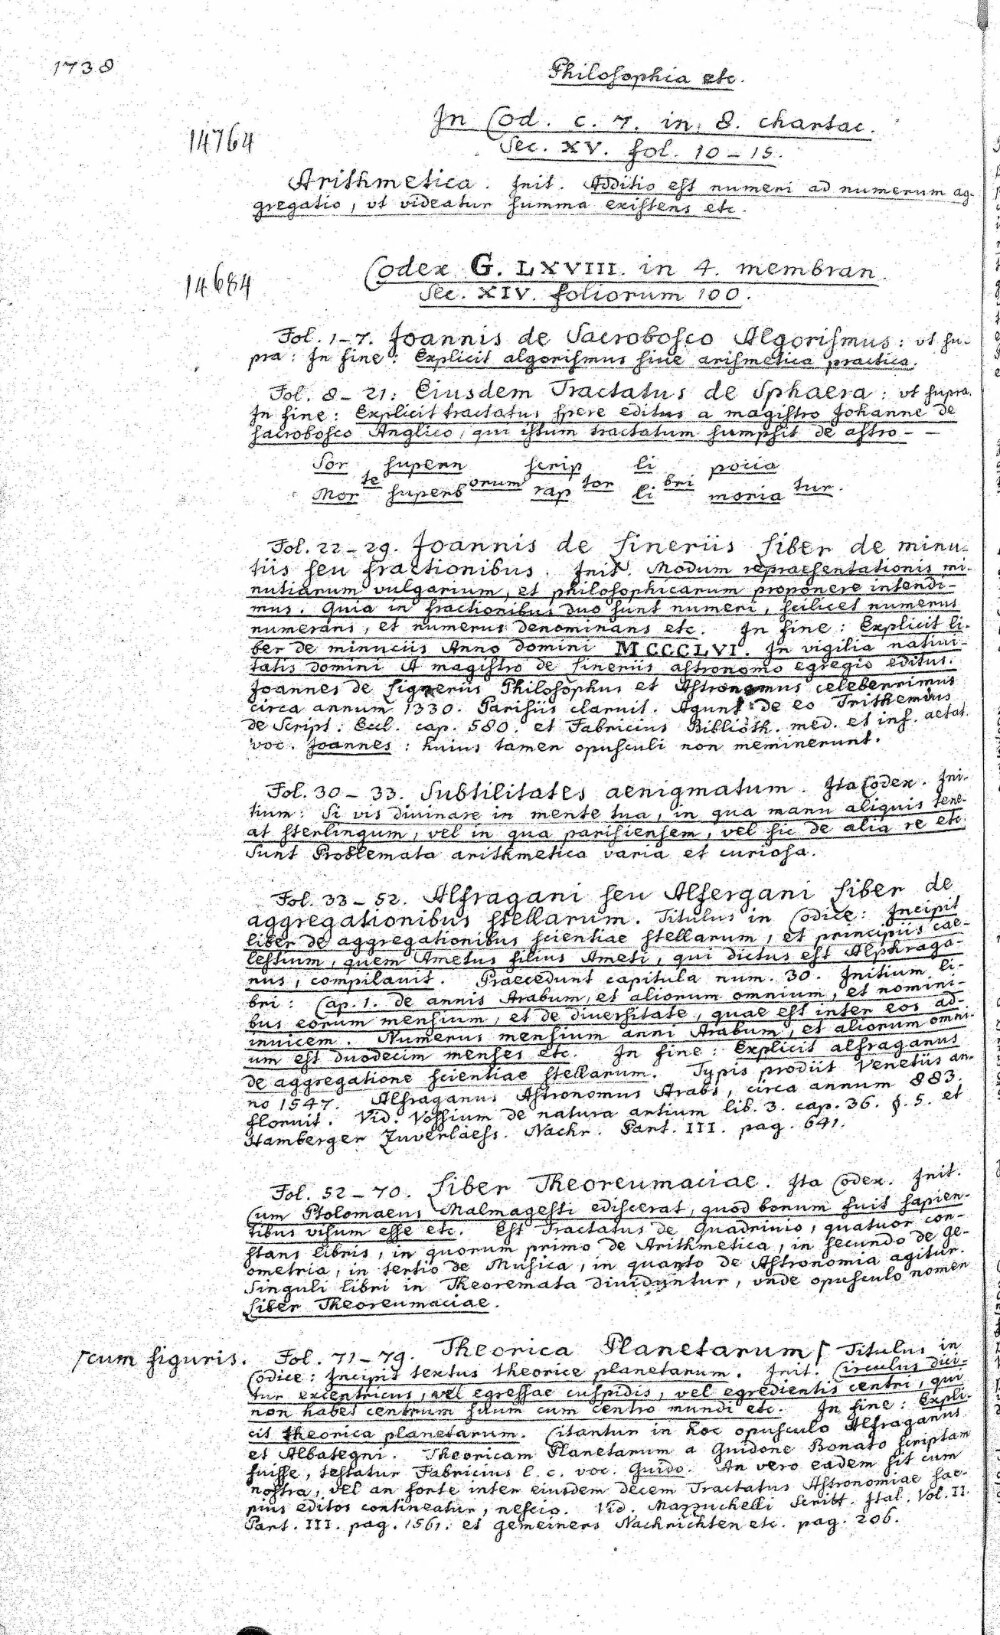 1738
Philosophia etc.
In Cod. c. 7. in 8. chartac.
14764
Sec. XV. fol. 10-15.
Arithmetica. Init. Additio est numeri ad numerum ag-
gregatio, ut videatur summa existens etc.
Codex G. LXVIII. in 4. membran.
14684
Sec. XIV. foliorum 100.
Fol. 1-7. Joannis de Sacrobosco Algorismus: ut su-
pra: In fine: Explicit algorismus sive arismetica practica.
Fol. 8-21: Eiusdem Tractatus de Sphaera: ut supra.
In fine: Explicit tractatus spere editus a magistro Johanne de
sacrobosco Anglico, qui istum tractatum sumpsit de astro - -
Sor supern scrip li pocia
te orum tor bri tur.
Mor superb rap li moria
Fol. 22-29. Joannis de Lineriis Liber de minu-
tiis seu fractionibus. Init. Modum repraesentationis mi-
nutiarum vulgarium, et philosophicarum proponere intendi-
mus. Quia in fractionibus duo sunt numeri, scilicet numerus
numerans, et numerus denominans etc. In fine: Explicit li-
ber de minuciis Anno domini MCCCLVI. In vigilia nativi-
tatis domini A magistro de Lineriis astronomo egregio editus.
Joannes de Ligneriis Philosophus et Astronomus celeberrimus
circa annum 1330. Parisiis claruit. Agunt de eo Trithemius
de Script. Eccl. cap. 580. et Fabricius Biblioth. med. et inf. aetat.
voc. Joannes: huius tamen opusculi non meminerunt.
Fol. 30-33. Subtilitates aenigmatum. Ita Codex. Ini-
tium: Si vis divinare in mente tua, in qua manu aliquis tene-
at sterlingum, vel in qua parisiensem, vel sic de alia re etc.
Sunt Problemata arithmetica varia et curiosa.
Fol. 33-52. Alfragani seu Alfergani Liber de
aggregationibus stellarum. Titulus in Codice: Incipit
liber de aggregationibus scientiae stellarum, et principiis cae-
lestium, quem Ametus filius Ameti, qui dictus est Alphraga-
nus, compilavit. Praecedunt capitula num. 30. Initium li-
bri: Cap. 1. de annis Arabum, et aliorum omnium, et nomini-
bus eorum mensium, et de diversitate, quae est inter eos ad-
invicem. Numerus mensium anni Arabum, et aliorum omni-
um est duodecim menses etc. In fine: Explicit alfraganus
de aggregatione scientiae stellarum. Typis prodiit Venetiis an-
no 1547. Alfraganus Astronomus Arabs, circa annum 883.
floruit. Vid. Vossium de natura artium lib. 3. cap. 36. §. 5. et
Hamberger Zuverläess. Nachr. Part. III. pag. 641.
Fol. 52-70. Liber Theoreumaciae. Ita Codex. Init.
Cum Ptolomaeus Malmagesti ediscerat, quod bonum fuit sapien-
tibus visum esse etc. Est Tractatus de Quadrivio, quatuor con-
stans libris, in quorum primo de Arithmetica, in secundo de Ge-
ometria, in tertio de Musica, in quarto de Astronomia agitur.
Singuli libri in Theoremata dividuntur, unde opusculo nomen
Liber Theoreumaciae.
Fol. 71-79. Theorica Planetarum⌈ Titulus in
⌈cum figuris.
Codice: Incipit textus theorice planetarum. Init. Circulus dici-
tur excentricus, vel egressae cuspidis, vel egredientis centri, qui
non habet centrum suum cum centro mundi etc. In fine: Expli-
cit theorica planetarum. Citantur in hoc opusculo Alfraganus
et Albategni. Theoricam Planetarum a Guidone Bonato scriptam
fuisse, testatur Fabricius l. c. voc. Guido. An vero eadem sit cum
nostra, vel an forte inter eiusdem decem Tractatus Astronomiae sae-
pius editos contineatur, nescio. Vid. Mazzuchelli Scritt. Ital. Vol. II.
Part. III. pag. 1561. et gemeiners Nachrichten etc. pag. 206.